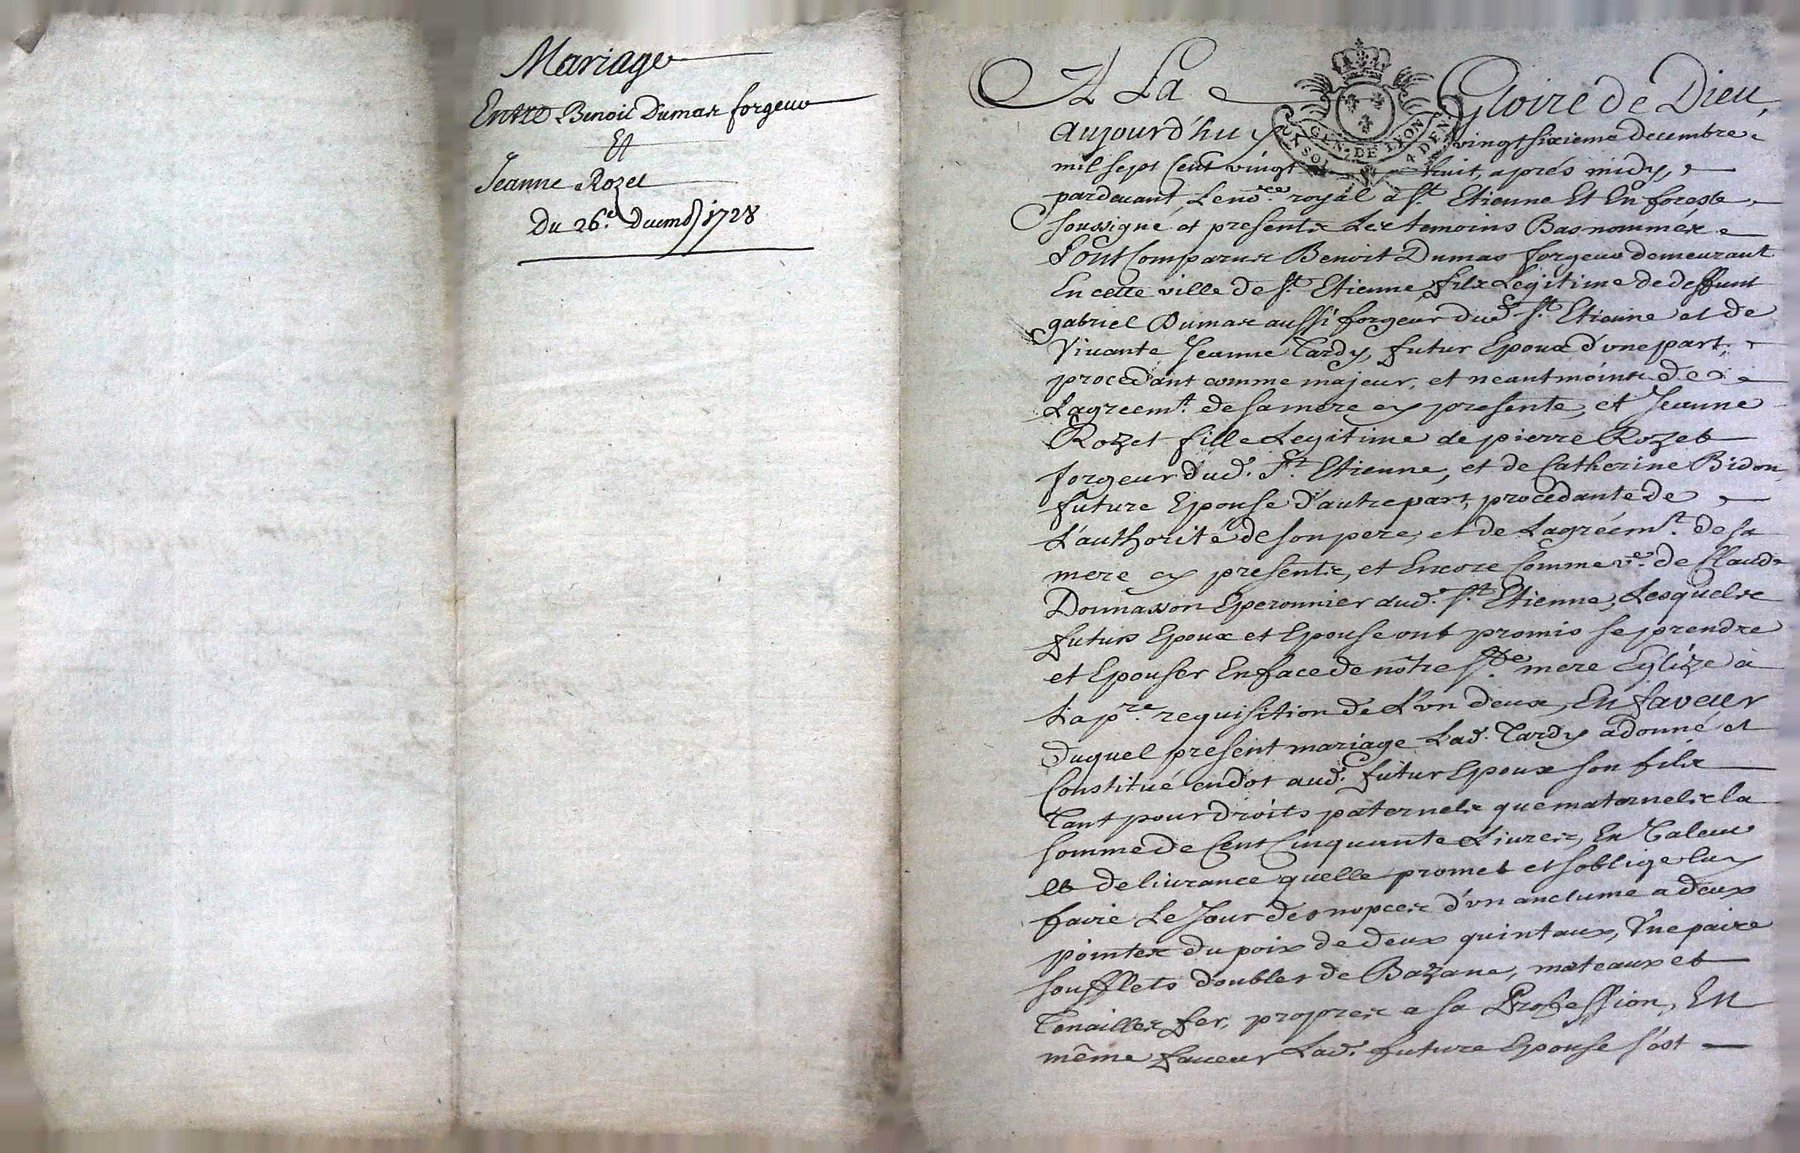 Mariage
Entre Benoit Dumas forgeur
Et
Jeanne Rozet
Du 26.e Decemb 1728
A La Gloire de Dieu,
GEN. DE LYON
4 DEN.
aujourd'huy vingt sixieme decembre
mil sept Cent vingt huit, aprés midy,
pardevant Le no.re royal a St. Etienne Et En forest
soussigné et presents Les temoins Bas nommés
Sont Comparus Benoit Dumas forgeur demeurant
En cette ville de St. Etienne, fils Legitime de deffunt
gabriel Dumas aussi forgeur dud. St. Etienne et de
Vivante Jeanne Tardy, futur Epoux d'vne part,
procedant comme majeur, et neantmoins de
L'agreemt. de sa mere cy presente, et Jeanne
Rozet fille Legitime de pierre Rozet
forgeur dud. St. Etienne, et de Catherine Bidon
future Epouse d'autre part, procedante de
L'authorité de son pere, et de L'agréemt. de sa
mere cy presents, et Encore Comme ve. de Claude
Donnasson Eperonnier aud. St. Etienne, Lesquels
futurs Epoux et Epouse ont promis se prendre
et Epouser En face de nôtre Ste. mere Eglize à
La pre. requisition de L'vn deux, En faveur
duquel present mariage Lad. Tardy a donné et
Constitué en dot aud. futur Epoux son fils
Tant pour droits paternels que maternels la
somme de Cent Cinquante Livres, En Valeur
et delivrance quelle promet et soblige luy
faire Le Jour des nopces d'vn anclume a deux
pointes du poix de deux quintaux, Vne paire
soufflets doubles de Bazane, mateaux et
Tenailles fer, propres a sa Profession, En
même faveur Lad. future Epouse s'est